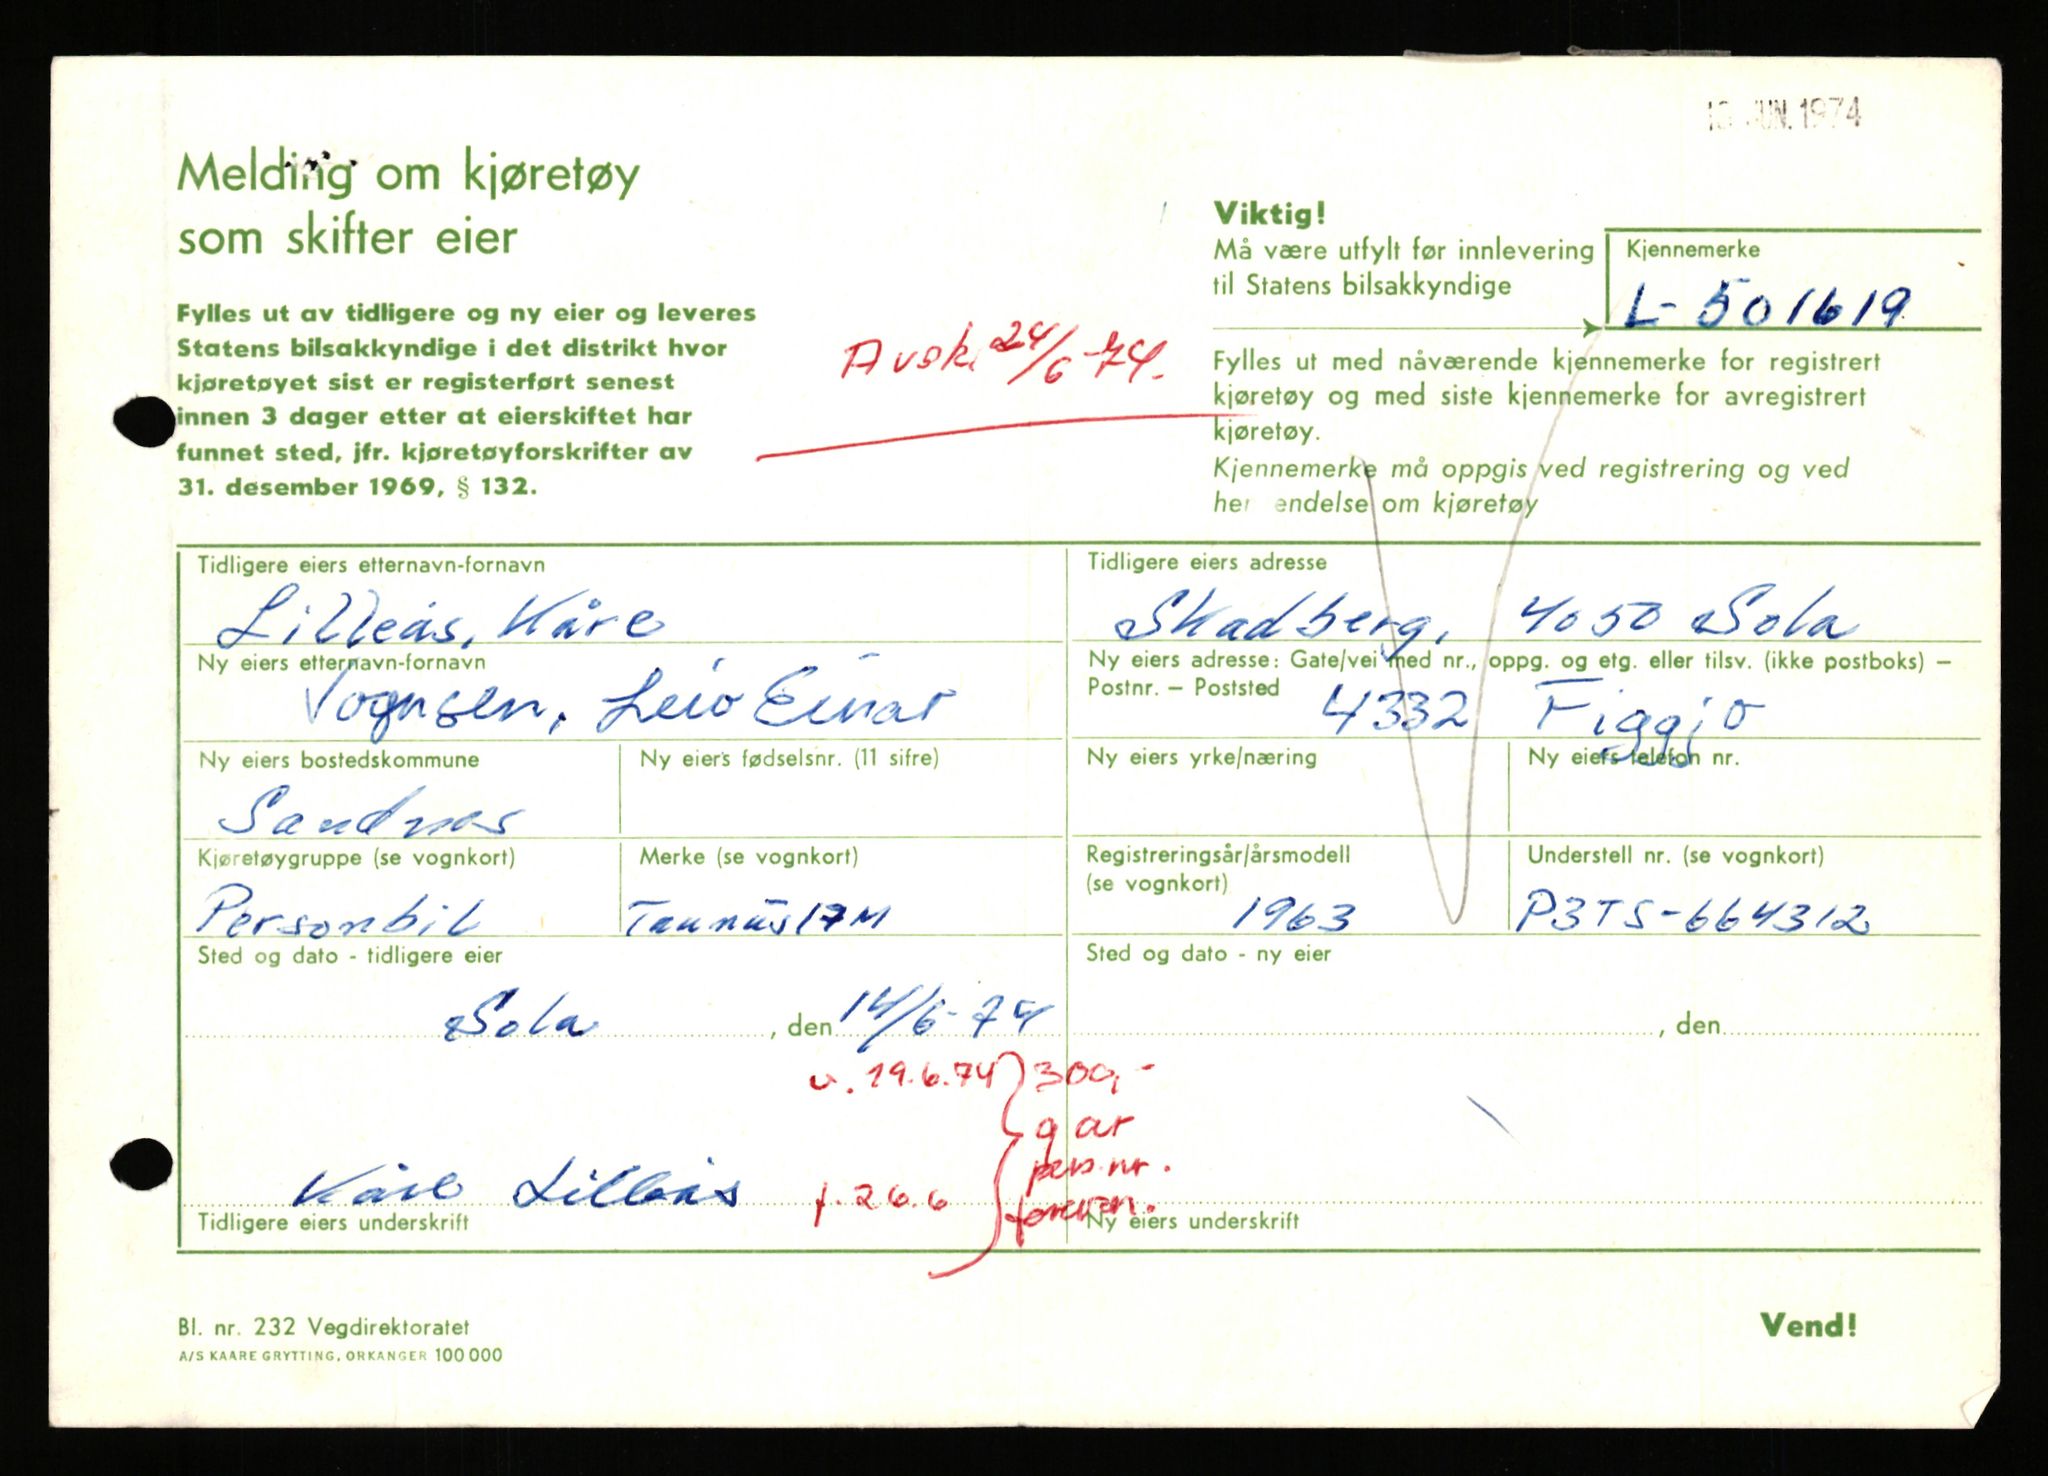 JUN. 1974
Melding om kjøretøy
som skifter eier
Viktig!
Må være utfylt før innlevering
til Statens bilsakkyndige
Kjennemerke
L-501619
Fylles ut av tidligere og ny eier og leveres
Statens bilsakkyndige i det distrikt hvor
kjøretøyet sist er registerført senest
innen 3 dager etter at eierskiftet har
funnet sted, jfr. kjøretøyforskrifter av
31. desember 1969, § 132.
Avsk. 24/6-74.
Fylles ut med nåværende kjennemerke for registrert
kjøretøy og med siste kjennemerke for avregistrert
kjøretøy.
Kjennemerke må oppgis ved registrering og ved
her endelse om kjøretøy
Tidligere eiers etternavn-fornavn
Lilleås, Kåre
Tidligere eiers adresse
Skadberg, 4050 Sola
Ny eiers etternavn-fornavn
Vognsen, Leiv Einar
Ny eiers adresse: Gate/vei med nr., oppg. og etg. eller tilsv. (ikke postboks) –
Postnr. – Poststed
4332 Figgjo
Ny eiers bostedskommune
Sandnes
Ny eiers fødselsnr. (11 sifre)
Ny eiers yrke/næring
Ny eiers telefon nr.
Kjøretøygruppe (se vognkort)
Personbil
Merke (se vognkort)
Taunus 17M
Registreringsår/årsmodell
(se vognkort)
1963
Understell nr. (se vognkort)
P3TS-664312
Sted og dato - tidligere eier
Sola, den 14/6-74
Sted og dato - ny eier
, den
v. 19.6.74 300,-
g ar
pers.nr.
Kåre Lilleås
f. 26.6
Tidligere eiers underskrift
Ny eiers underskrift
Bl. nr. 232 Vegdirektoratet
A/S KAARE GRYTTING, ORKANGER 100 000
Vend!